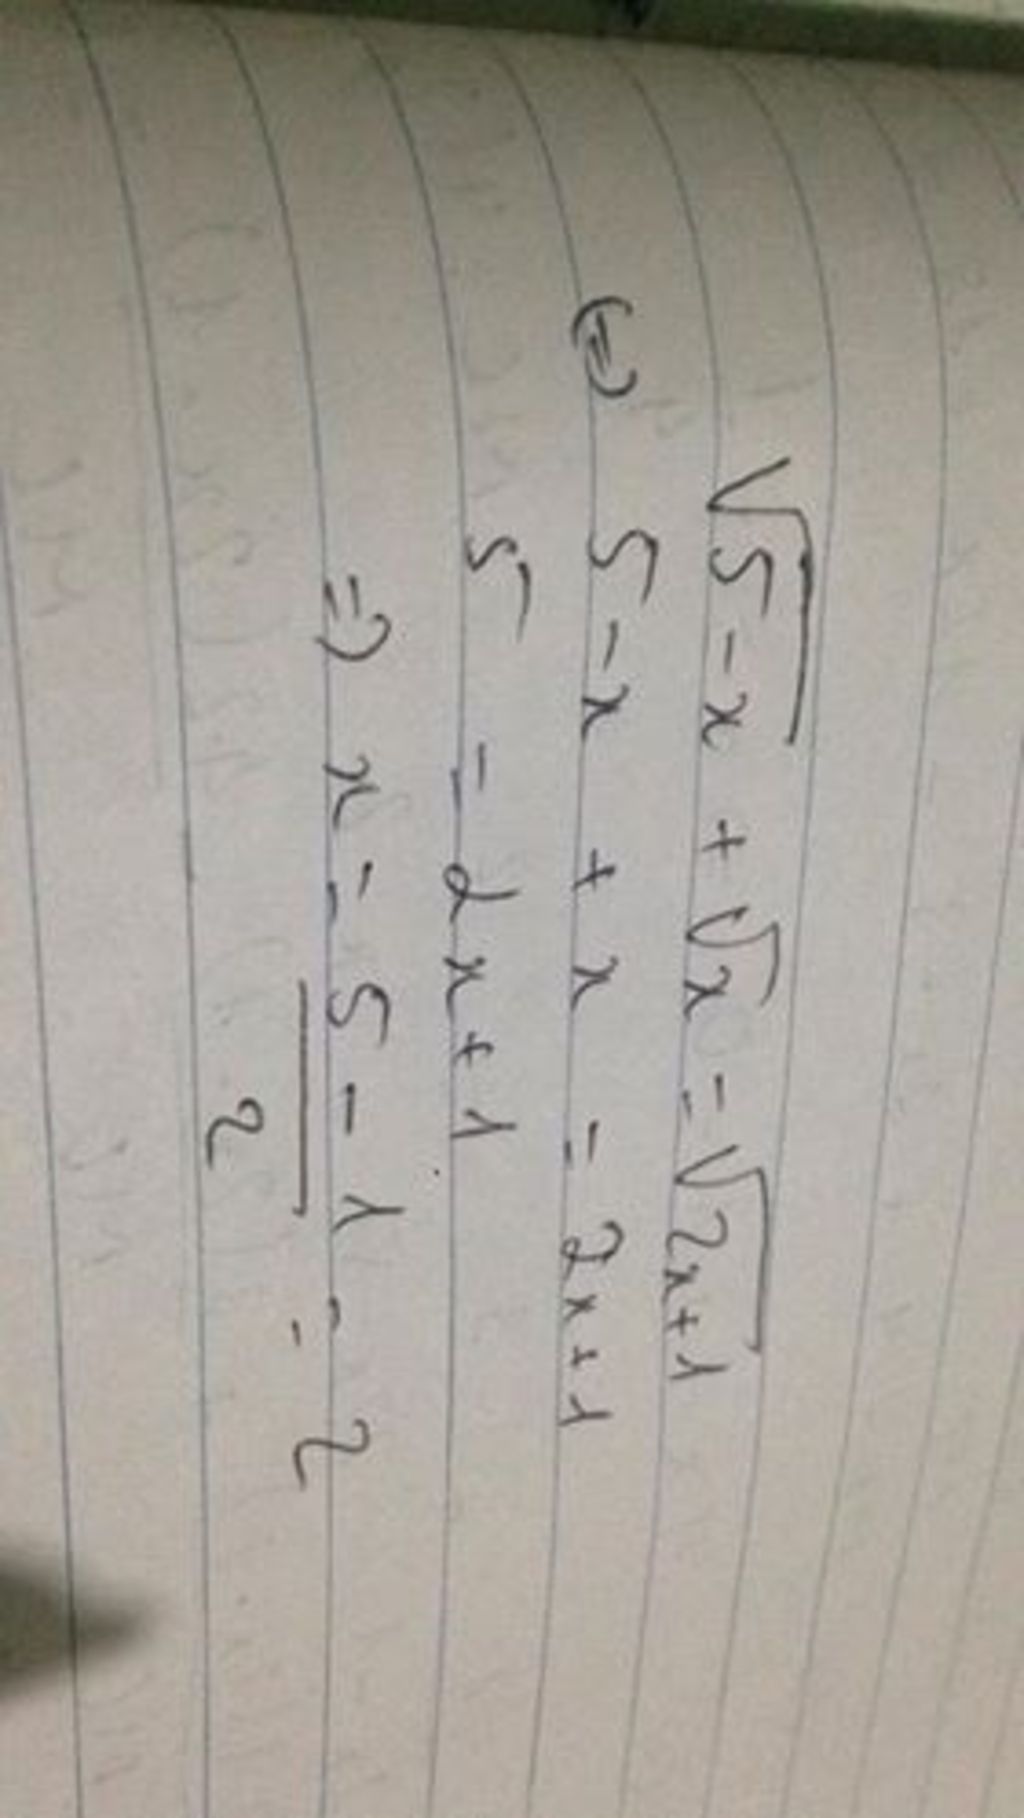 √(5-x) + √x = √(2x+1)
(=) 5-x + x = 2x+1
5 = 2x+1
=) x = (5-1)/2 = 2